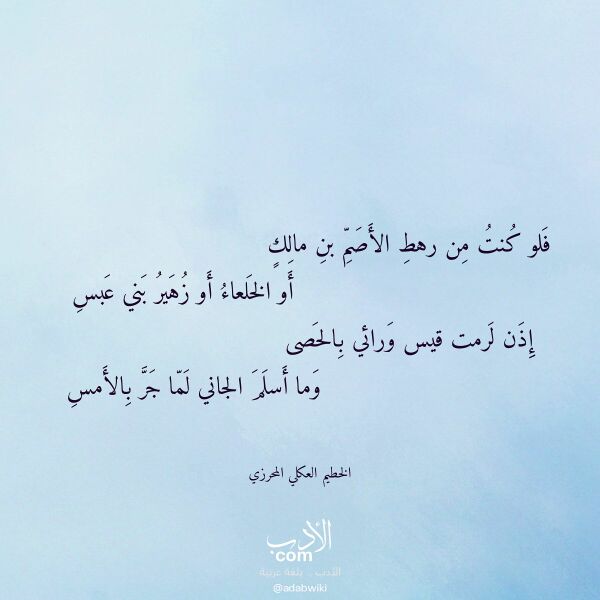 فَلو كُنتُ مِن رهطِ الأَصَمِّ بنِ مالِكٍ
أَو الخَلعاءُ أَو زُهَيرُ بَني عَبسِ
إِذَن لَرمت قيس وَرائي بِالحَصى
وَما أَسلَمَ الجاني لَمّا جَرَّ بِالأَمسِ
الخطيم العكلي المحرزي
الأدب
com
الأدب .. بلغة عربية
@adabwiki